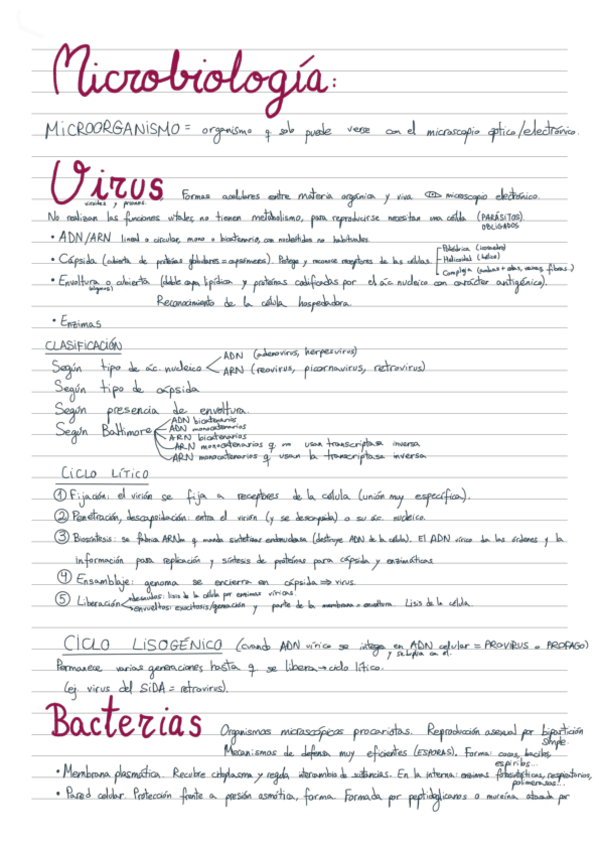 Microbiología:
MICROORGANISMO = organismo q solo puede verse con el microscopio óptico/electrónico.
Virus Formas acelulares entre materia orgánica y viva microscopio electrónico.
No realizan las funciones vitales, no tienen metabolismo, para reproducirse necesitan una célula (PARÁSITOS).
OBLIGADOS
• ADN/ARN lineal o circular, mono o bicatenario, con nucleótidos no habituales.
Poliédrica (icosaedro)
• Cápsida (cubierta de proteínas globulares = capsómeros). Protege y reconoce receptores de las células. Helicoidal (hélice)
Compleja (ambas + colas, fibras..)
• Envoltura o cubierta (doble capa lipídica y proteínas codificadas por el ác nucleico con carácter antigénico).
algunos
Reconocimiento de la célula hospedadora.
• Enzimas
CLASIFICACIÓN
Según tipo de ác. nucleico ADN (adenovirus, herpesvirus)
ARN (reovirus, picornavirus, retrovirus)
Según tipo de cápsida
Según presencia de envoltura.
Según Baltimore ADN bicatenarios
ADN monocatenarios
ARN bicatenarios
ARN monocatenarios q no usan transcriptasa inversa
ARN monocatenarios q usan la transcriptasa inversa
CICLO LÍTICO
① Fijación: el virión se fija a receptores de la célula (unión muy específica).
② Penetración, descapsidación: entra el virión (y se descapsida) o su ác. nucleico.
③ Biosíntesis: se fabrica ARNm q manda sintetizar endonucleasa (destruye ADN de la célula). El ADN vírico da las órdenes y la
información para replicación y síntesis de proteínas para cápsida y enzimáticas.
④ Ensamblaje: genoma se encierra en cápsida ⇒ virus.
⑤ Liberación desnudos: lisis de la célula por enzimas víricas.
envueltos: exocitosis/gemación y parte de la membrana = envoltura. Lisis de la célula.
CICLO LISOGÉNICO (cuando ADN vírico se integra en ADN celular = PROVIRUS o PROFAGO)
y se duplica con él.
Permanece varias generaciones hasta q se libera → ciclo lítico.
(ej. virus del SIDA = retrovirus).
Bacterias Organismos microscópicos procariotas. Reproducción asexual por bipartición
simple.
Mecanismos de defensa muy eficientes (ESPORAS). Forma: cocos, bacilos,
espirilos...
• Membrana plasmática. Recubre citoplasma y regula intercambio de sustancias. En la interna: enzimas fotosintéticas, respiratorias,
polimerasas!...
• Pared celular. Protección frente a presión osmótica, forma. Formada por peptidoglicanos o mureína atacada por